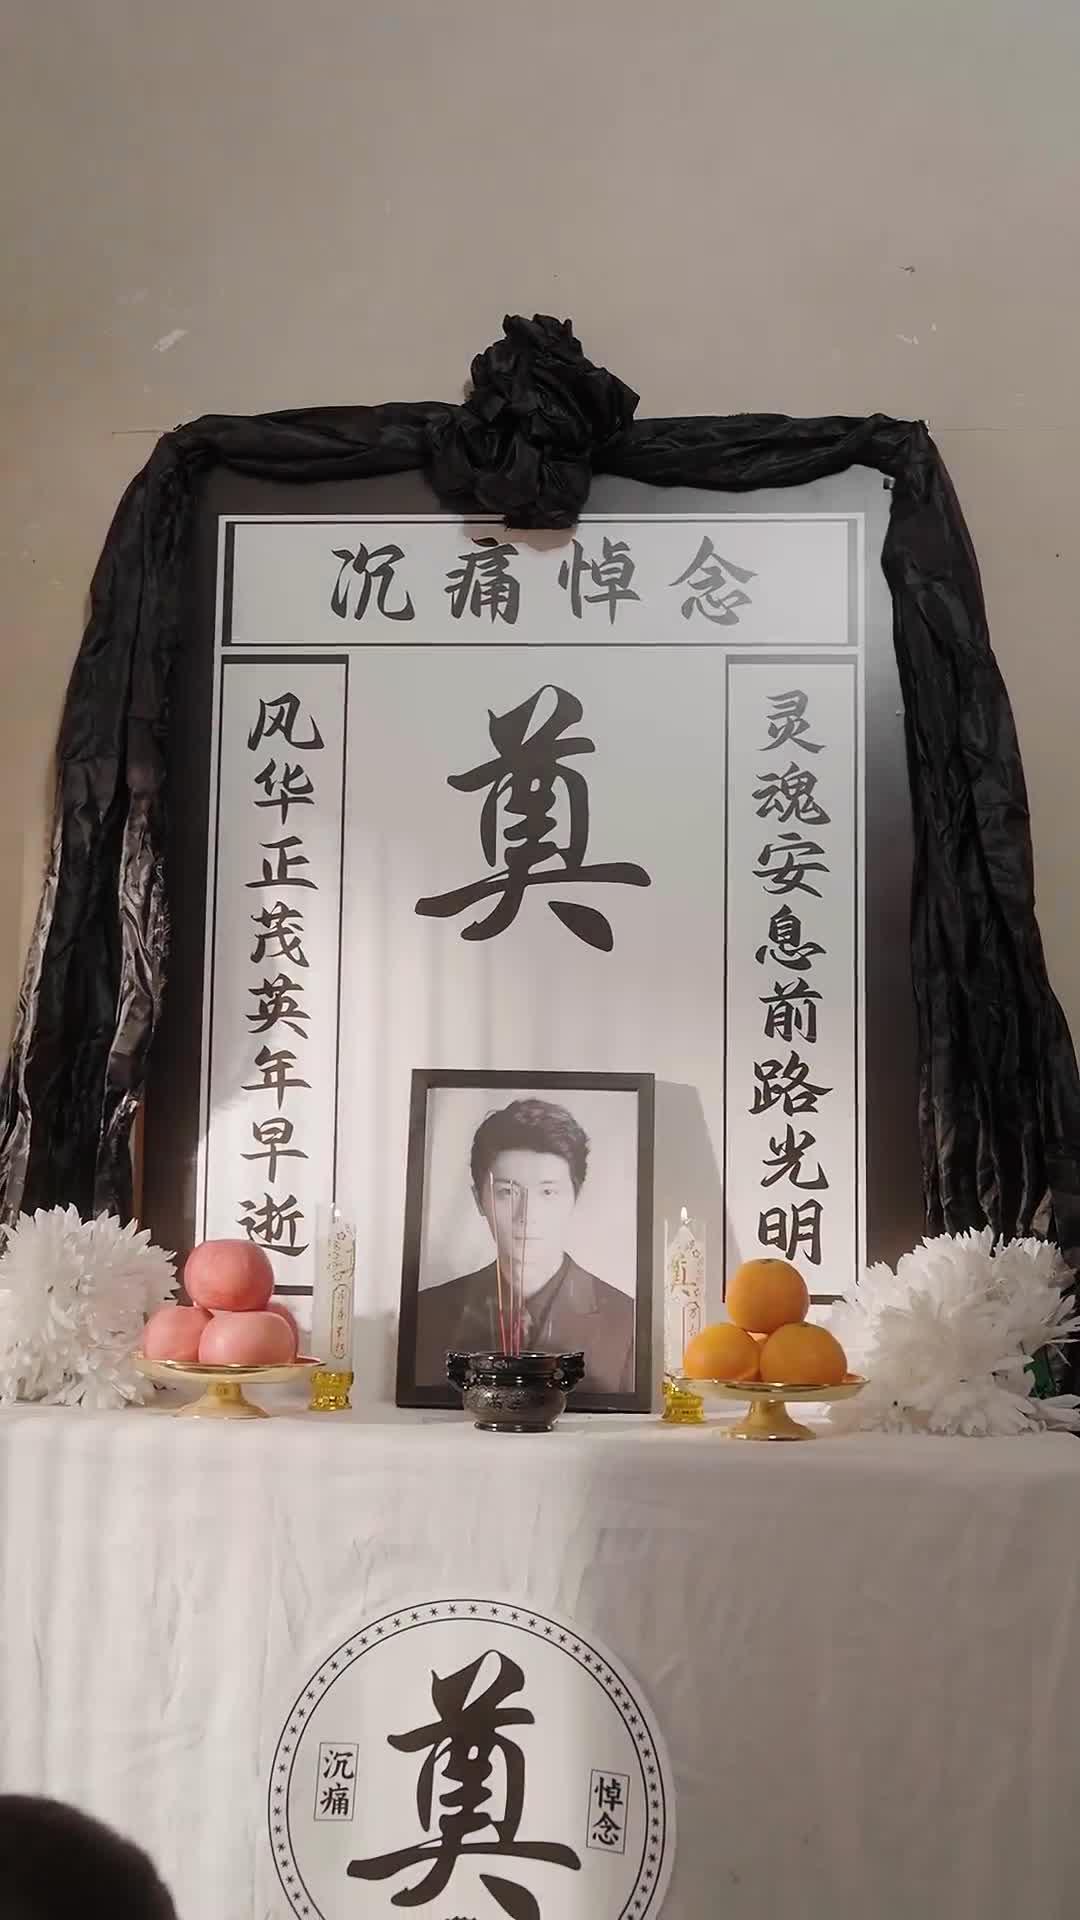 沉痛悼念
奠
风华正茂英年早逝
灵魂安息前路光明
奠
沉痛
悼念